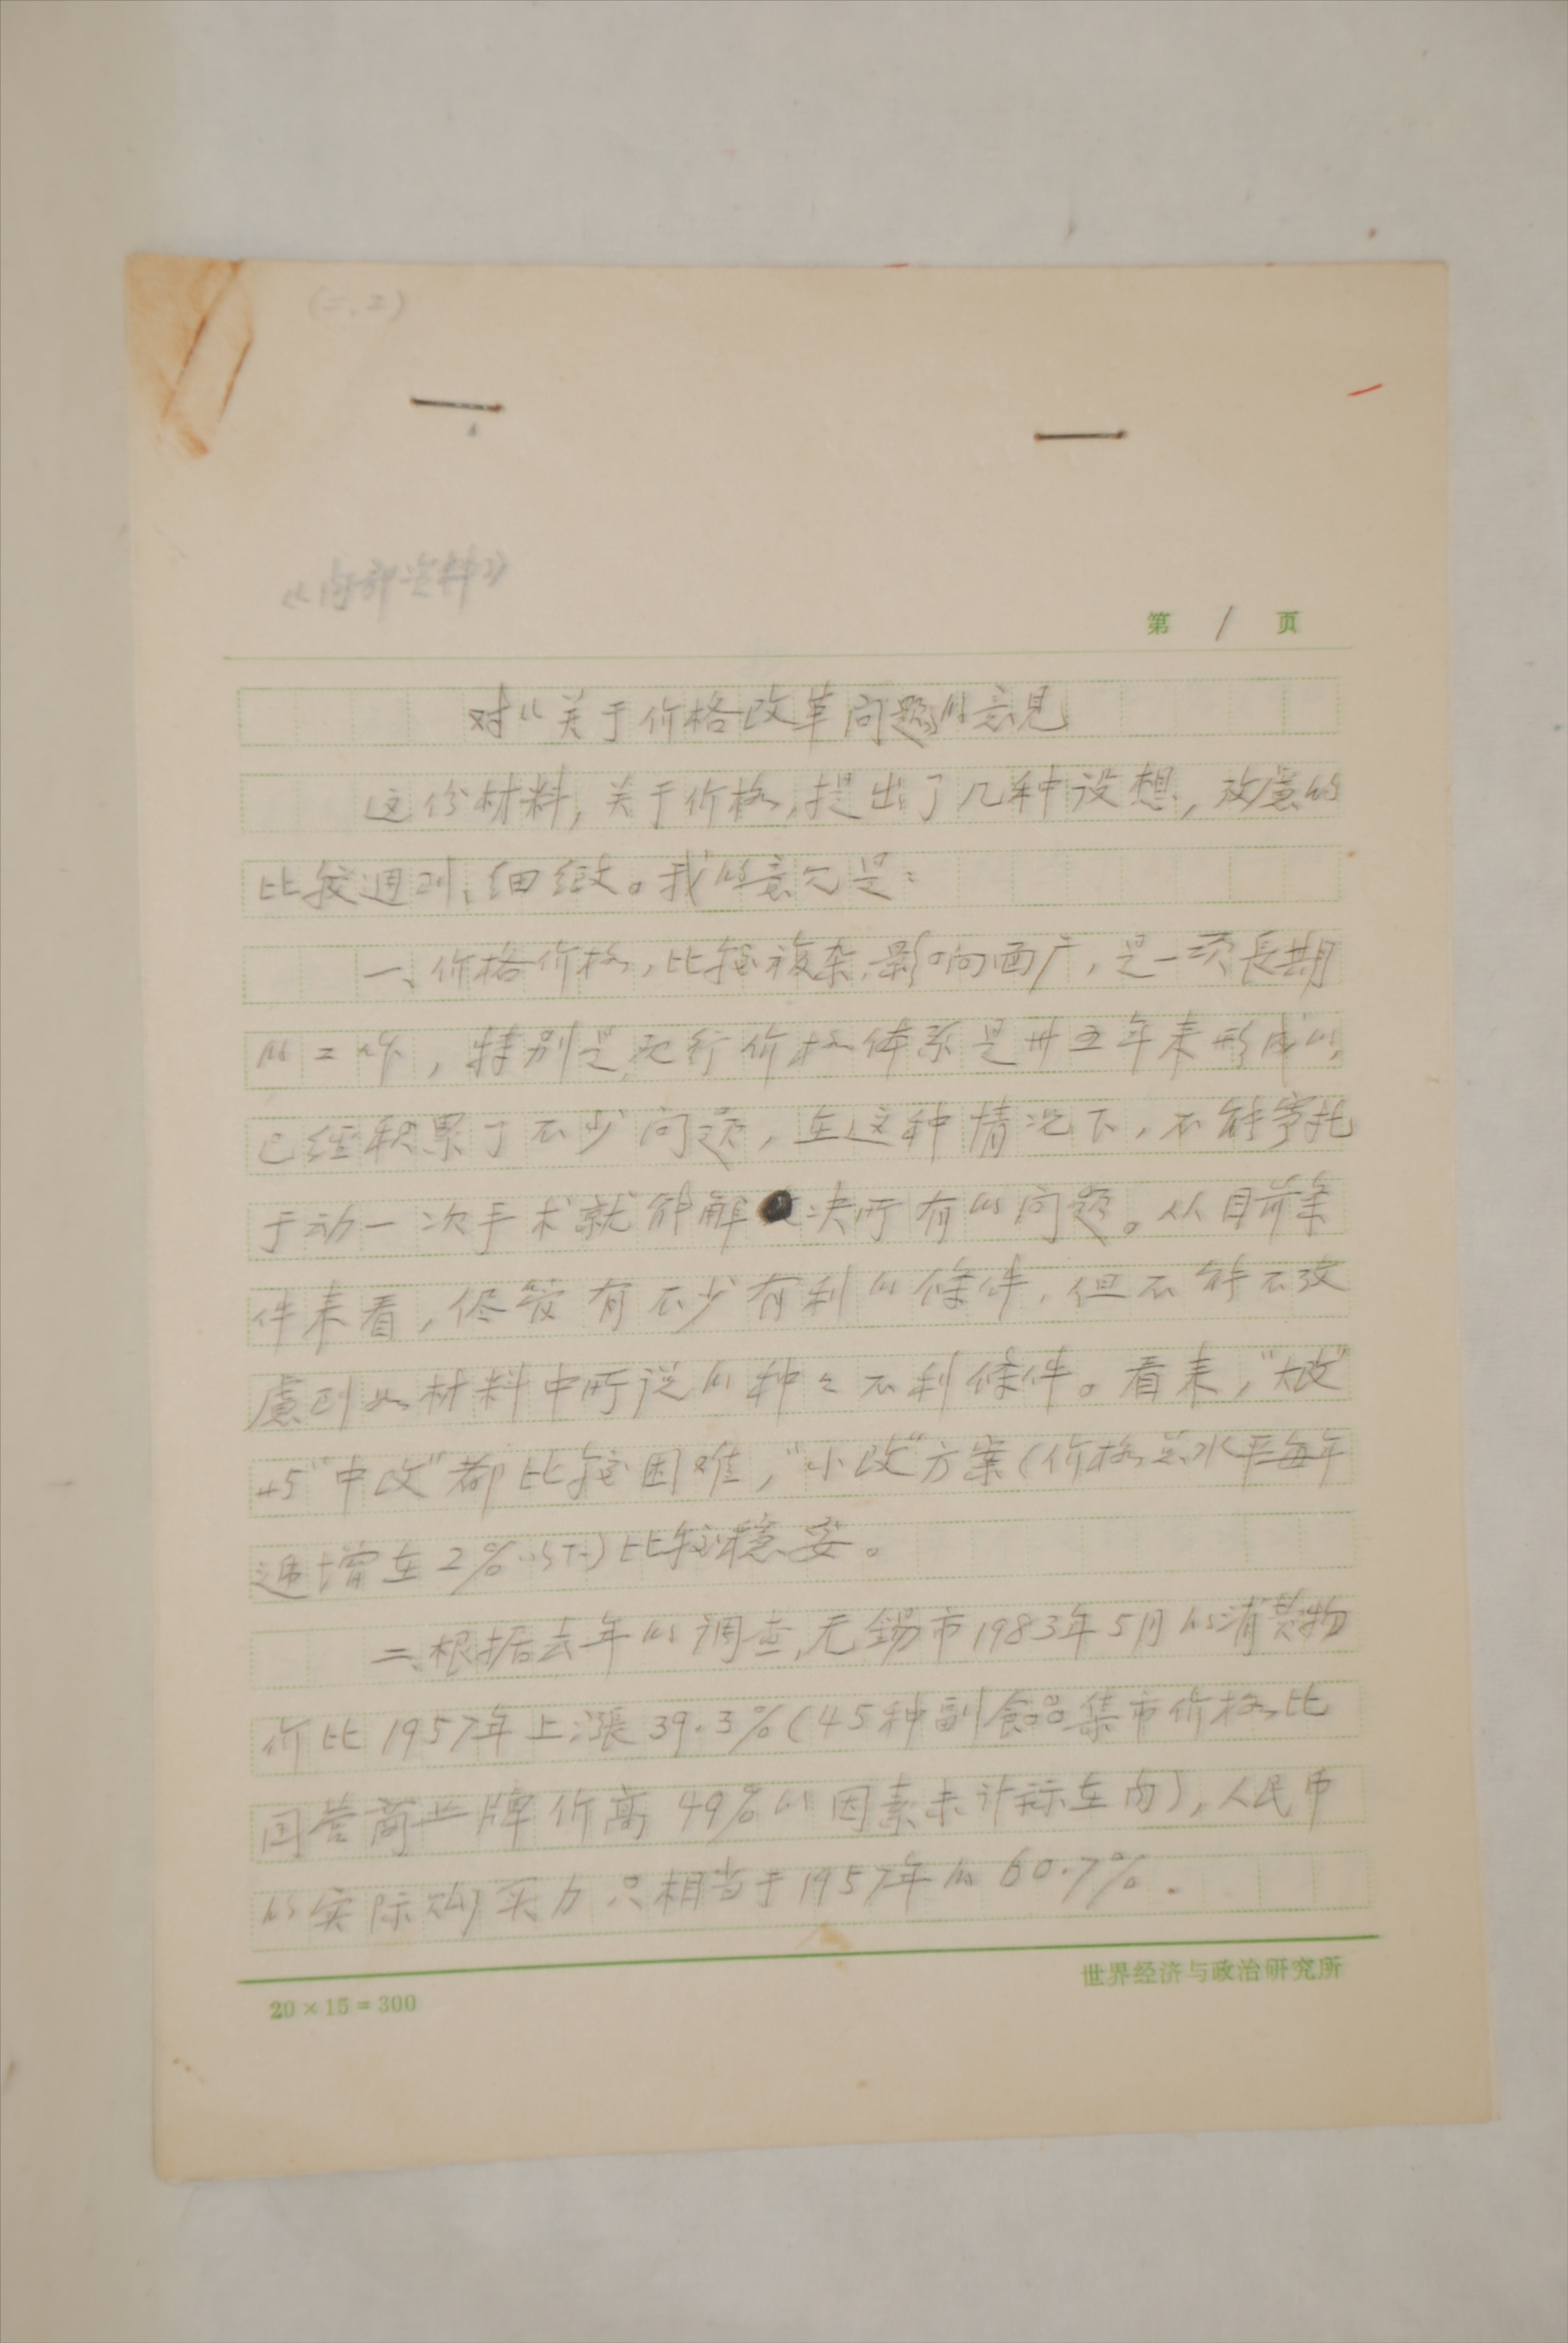 (二.2)
《内部资料》
第 1 页
对“关于价格改革问题的意见
这份材料，关于价格，提出了几种设想，攷慮的
比较週到、细緻。我的意见是：
一、价格价格，比较複杂，影响面广，是一项長期
的工作，特别是现行价格体系是卅五年来形成的，
已经积累了不少问题，在这种情况下，不能寄托
于动一次手术就能解决所有的问题。从目前条
件来看，侭管有不少有利的條件，但不能不攷
慮到如材料中所说的种々不利條件。看来，“大改”
与“中改”都比较困难，“小改”方案（价格总水平每年
递增在2%以下）比较穩妥。
二、根据去年的调查，无锡市1983年5月的消费物
价比1957年上漲39.3%（45种副食品集市价格比
国营商业牌价高49%的因素未计标在内），人民币
的实际购买力只相当于1957年的60.7%.
世界经济与政治研究所
20×15=300